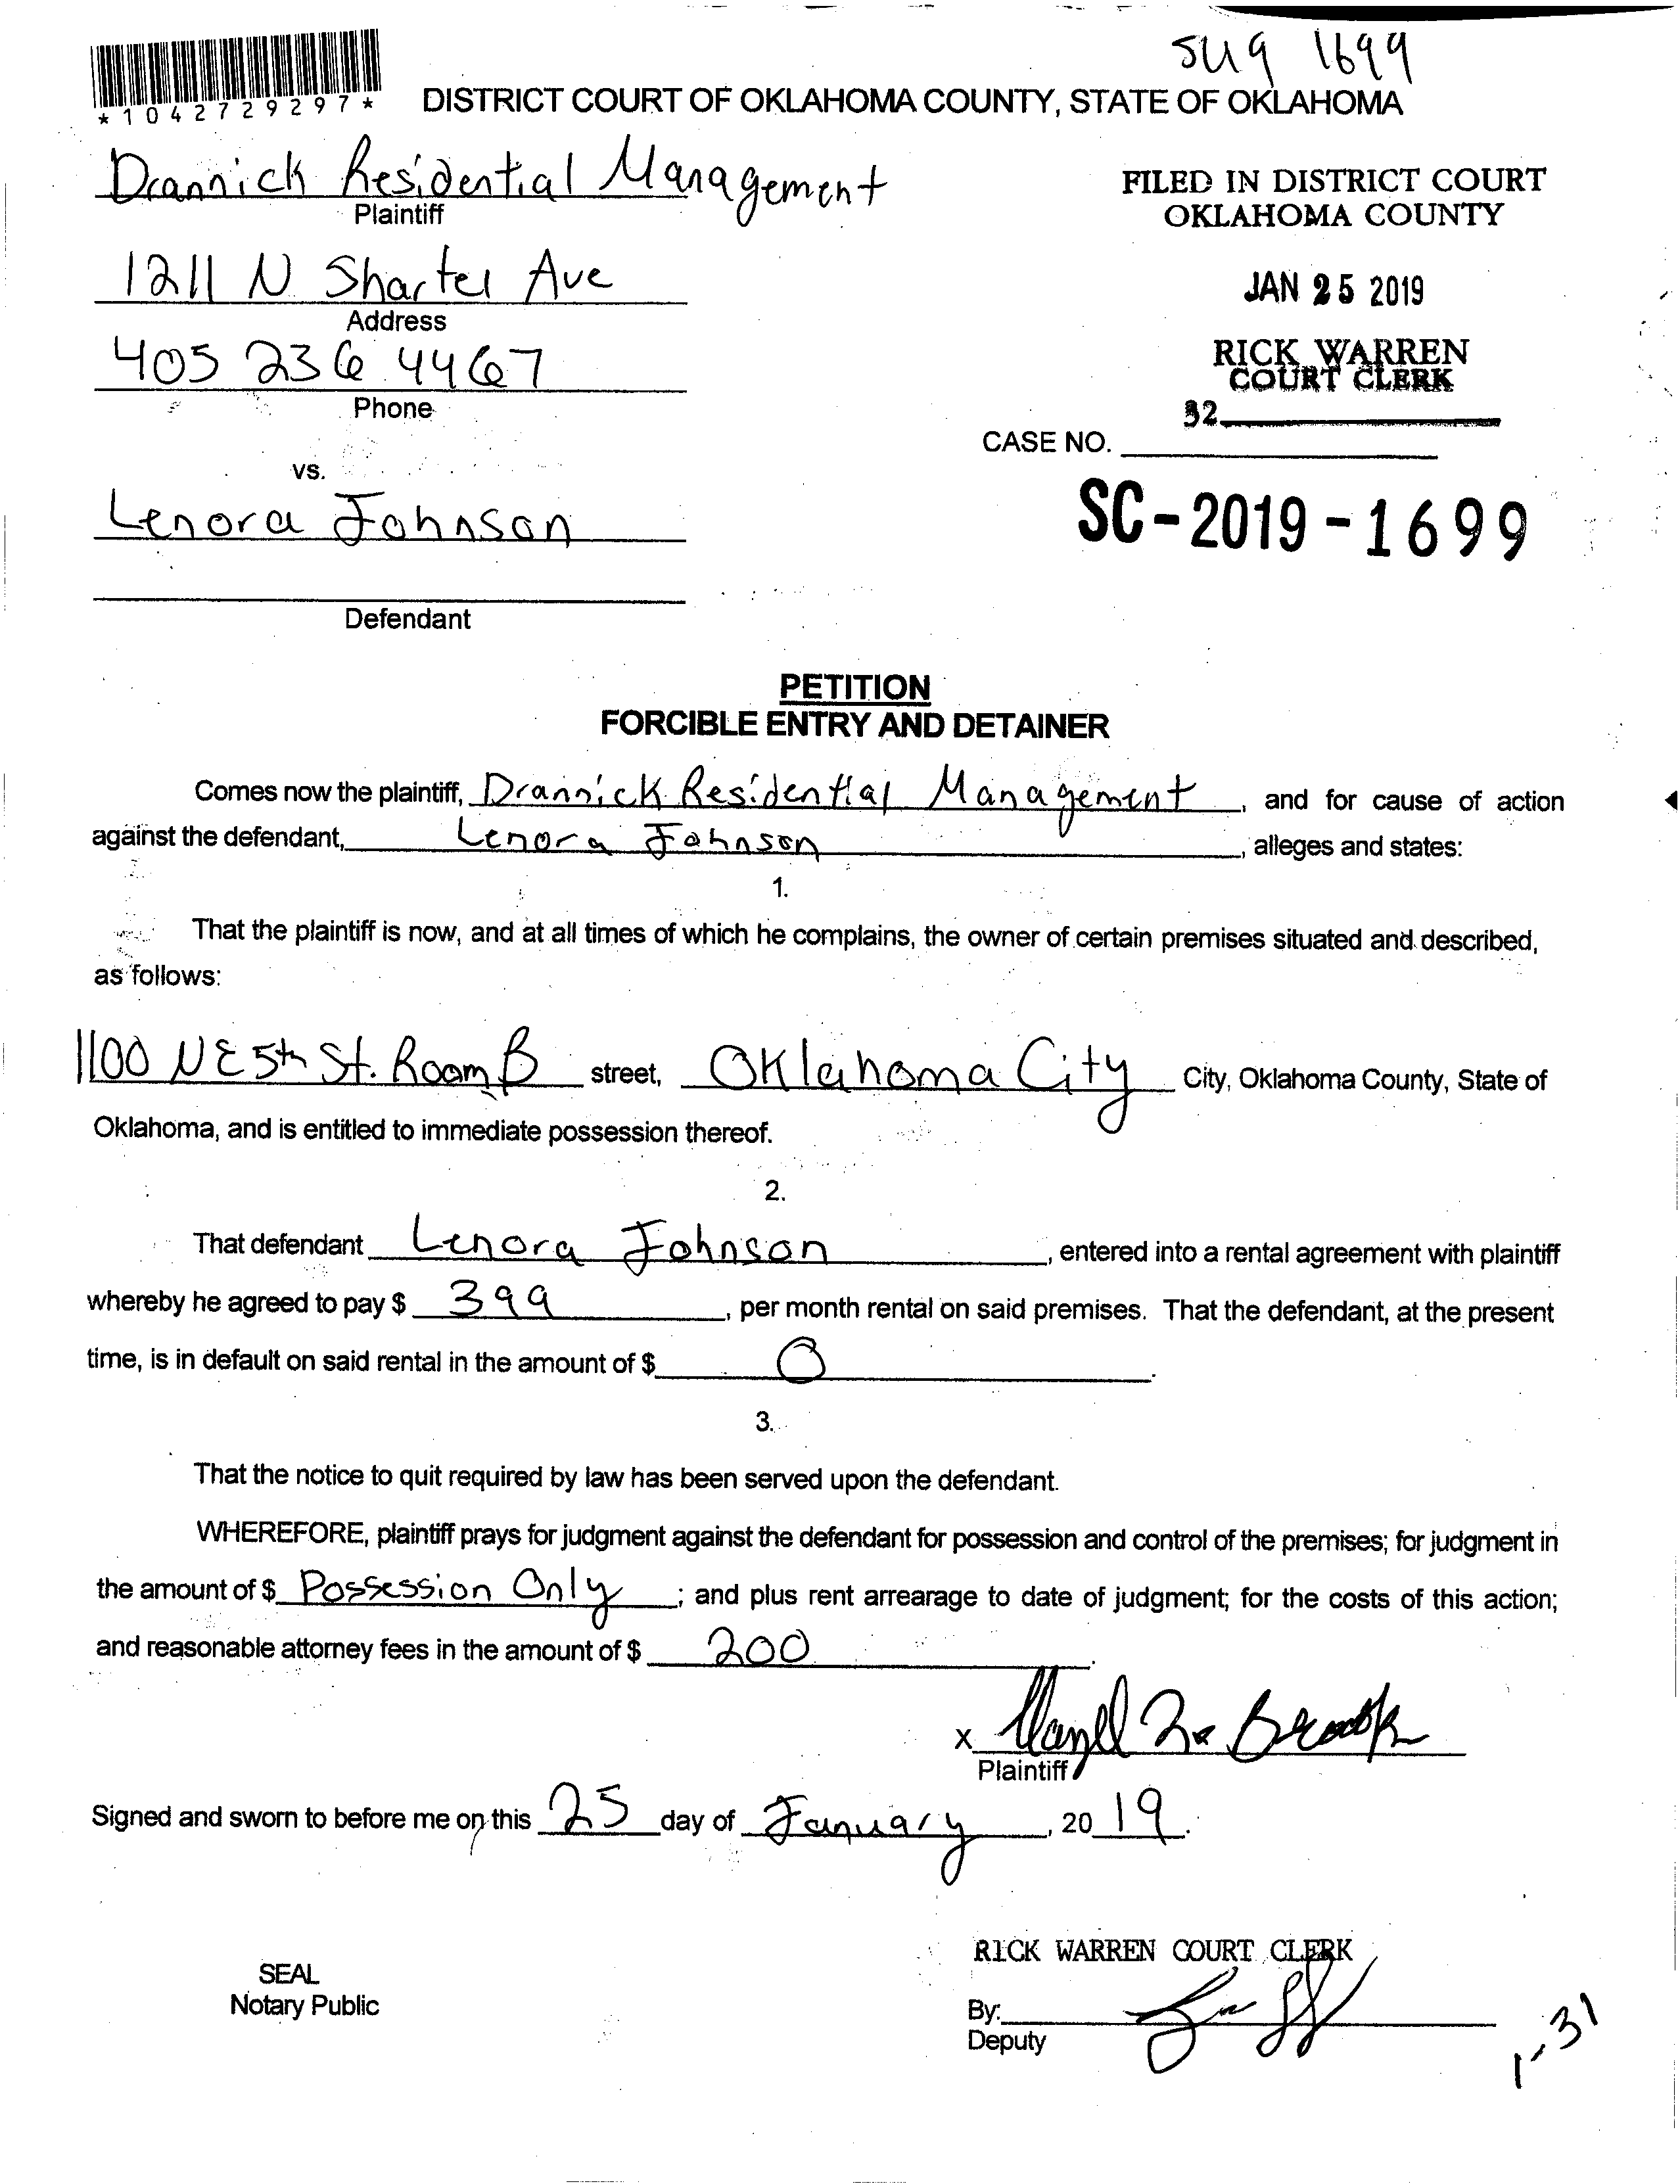 SC19 1699
*1042729297*
DISTRICT COURT OF OKLAHOMA COUNTY, STATE OF OKLAHOMA
Drannick Residential Management
Plaintiff
FILED IN DISTRICT COURT
OKLAHOMA COUNTY
1211 N Shartel Ave
Address
JAN 25 2019
405 236 4467
Phone
RICK WARREN
COURT CLERK
32
CASE NO.
vs.
Lenora Johnson
SC-2019-1699
Defendant
PETITION
FORCIBLE ENTRY AND DETAINER
Comes now the plaintiff, Drannick Residential Management, and for cause of action
against the defendant, Lenora Johnson, alleges and states:
1.
That the plaintiff is now, and at all times of which he complains, the owner of certain premises situated and described,
as follows:
1100 NE 5th St. Room B street, Oklahoma City City, Oklahoma County, State of
Oklahoma, and is entitled to immediate possession thereof.
2.
That defendant Lenora Johnson, entered into a rental agreement with plaintiff
whereby he agreed to pay $ 399, per month rental on said premises. That the defendant, at the present
time, is in default on said rental in the amount of $ 0.
3.
That the notice to quit required by law has been served upon the defendant.
WHEREFORE, plaintiff prays for judgment against the defendant for possession and control of the premises; for judgment in
the amount of $ Possession Only; and plus rent arrearage to date of judgment; for the costs of this action;
and reasonable attorney fees in the amount of $ 200.
x
Plaintiff
Signed and sworn to before me on this 25 day of January, 2019.
RICK WARREN COURT CLERK
SEAL
Notary Public
By:
Deputy
1-31